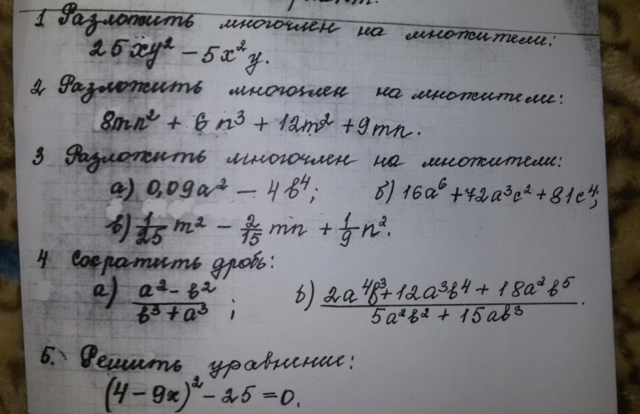 1 Разложить многочлен на множители:
25xy² − 5x²y.
2 Разложить многочлен на множители:
8mn² + 6n³ + 12m² + 9mn.
3 Разложить многочлен на множители:
а) 0,09a² − 4b⁴; б) 16a⁶ + 72a³c² + 81c⁴;
в) 1/25 m² − 2/15 mn + 1/9 n².
4 Сократить дробь:
а) (a² − b²)/(b³ + a³); в) (2a⁴b³ + 12a³b⁴ + 18a²b⁵)/(5a²b² + 15ab³).
5. Решить уравнение:
(4 − 9x)² − 25 = 0.